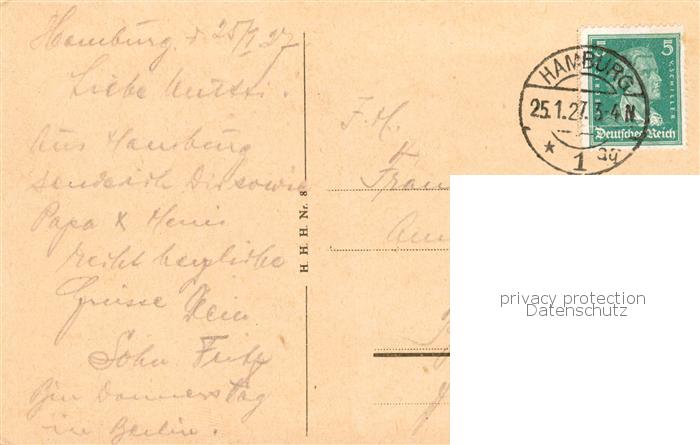 Hamburg d 25/I 27
Liebe Mutti!
Aus Hamburg
sende ich Dir sowie
Papa &
recht herzliche
Grüsse Dein
Sohn Fritz
Bin Donnerstag
in Berlin.
H. H. H. Nr. 8
HAMBURG
25.1.27.3-4 N
* 1 aq
5 5
Deutsches Reich
privacy protection
Datenschutz